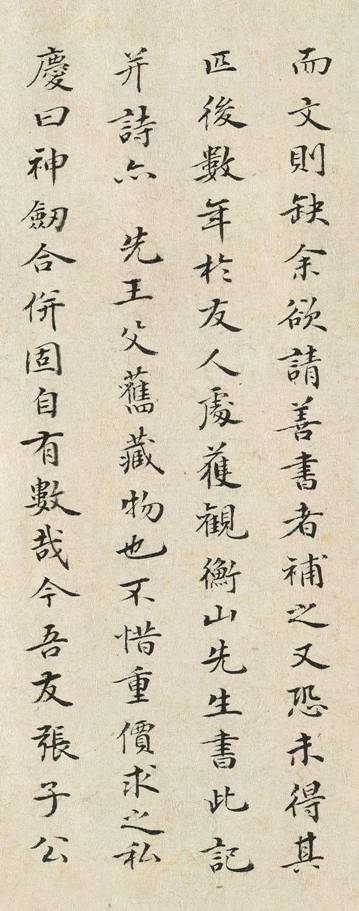 而文則缺余欲請善書者補之又恐未得其
匹後數年於友人處獲觀衡山先生書此記
并詩亦 先王父舊藏物也不惜重價求之私
慶曰神劒合併固自有數哉今吾友張子公